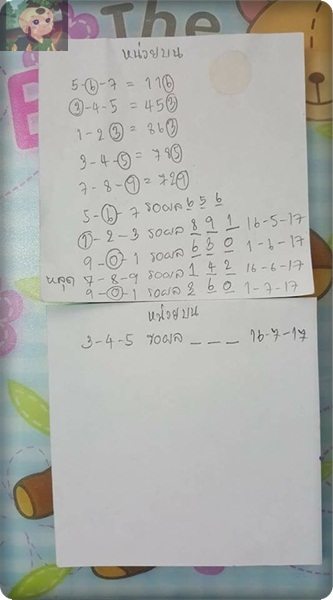 The
หน่วยบน
5-6-7 = 116
3-4-5 = 453
1-2 3 = 863
3-4-5 = 785
7-8-9 = 729
5-6-7 รอผล 6 5 6
1-2-3 รอผล 8 9 1 16-5-17
9-0-1 รอผล 6 3 0 1-6-17
หลุด 7-8-9 รอผล 1 4 2 16-6-17
9-0-1 รอผล 2 6 0 1-7-17
หน่วยบน
3-4-5 รอผล _ _ _ 16-7-17